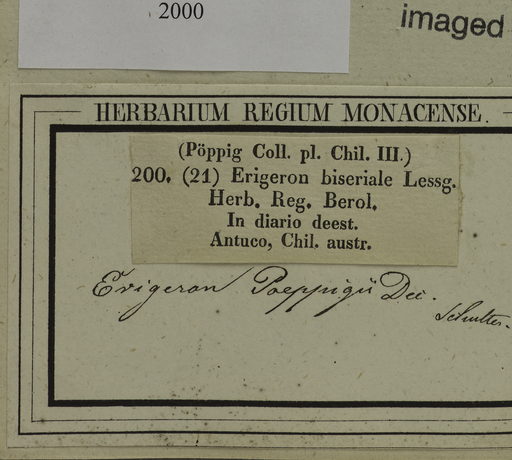 2000
imaged
HERBARIUM REGIUM MONACENSE.
(Pöppig Coll. pl. Chil. III.)
200. (21) Erigeron biseriale Lessg.
Herb. Reg. Berol.
In diario deest.
Antuco, Chil. austr.
Erigeron Poeppigii Dec.
Schultes.